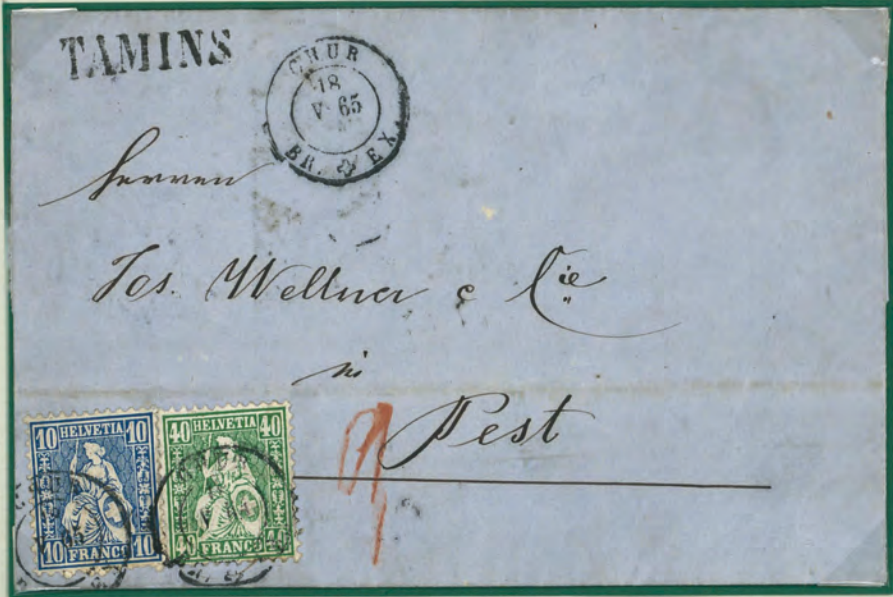 TAMINS
CHUR
18
V 65
BR. EX.
Herren
Jos. Wellner & Cie
in
Pest
10 HELVETIA 10
10 FRANCO 10
40 HELVETIA 40
40 FRANCO 40
CHUR